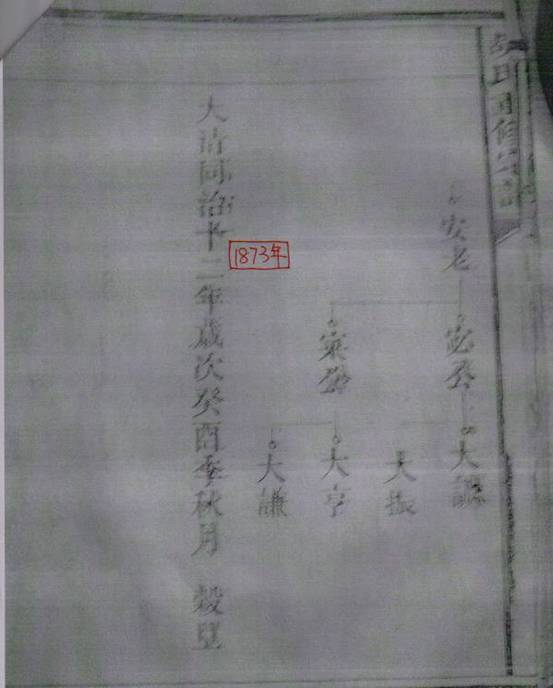 安老
宓公
寀公
大振
大亨
大謙
大清同治十二年歲次癸酉季秋月 穀旦
1873年